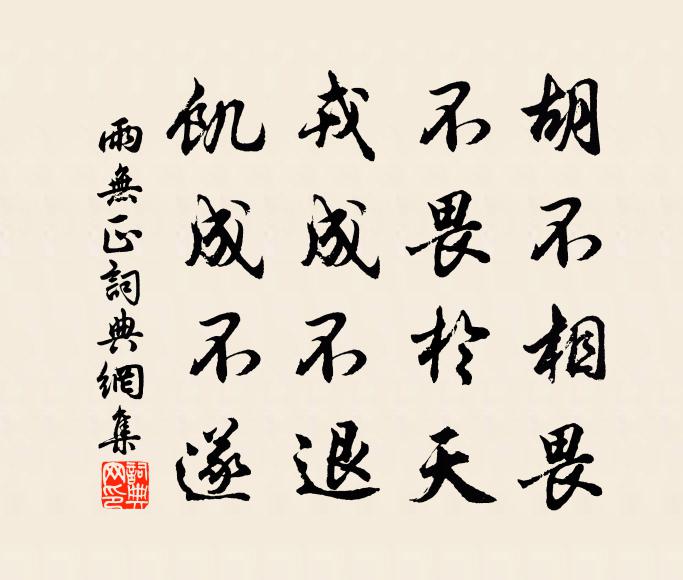 胡不相畏
不畏於天
戎成不退
飢成不遂
雨無正詞典網集
詞典网印